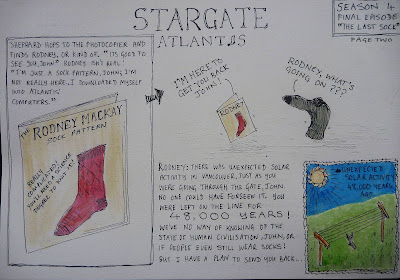 STARGATE
ATLANTIS
SEASON 4
FINAL EPISODE
"THE LAST SOCK"
PAGE TWO
SHEPPARD HOPS TO THE PHOTOCOPIER AND
FINDS RODNEY, OR KIND OF. "IT'S GOOD TO
SEE YOU, JOHN". RODNEY ISN'T REAL.
"I'M JUST A SOCK PATTERN, JOHN; I'M
NOT REALLY HERE. I DOWNLOADED MYSELF
INTO ATLANTIS'
COMPUTERS."
THE RODNEY MACKAY
SOCK PATTERN
REALLY
COMPLICATED!
YOU'LL NEED
TO KNIT IT!
I'M HERE TO
GET YOU BACK
JOHN!
RODNEY
RODNEY, WHAT'S
GOING ON ???
RODNEY: THERE WAS UNEXPECTED SOLAR
ACTIVITY IN VANCOUVER, JUST AS YOU
WERE GOING THROUGH THE GATE, JOHN.
NO ONE COULD HAVE FORSEEN IT. YOU
WERE LEFT ON THE LINE FOR
48,000 YEARS!
WE'VE NO WAY OF KNOWING OF THE
STATE OF HUMAN CIVILISATION, JOHN, OR
IF PEOPLE EVEN STILL WEAR SOCKS!
BUT I HAVE A PLAN TO SEND YOU BACK...
UNEXPECTED
SOLAR ACTIVITY
48,000 YEARS
AGO